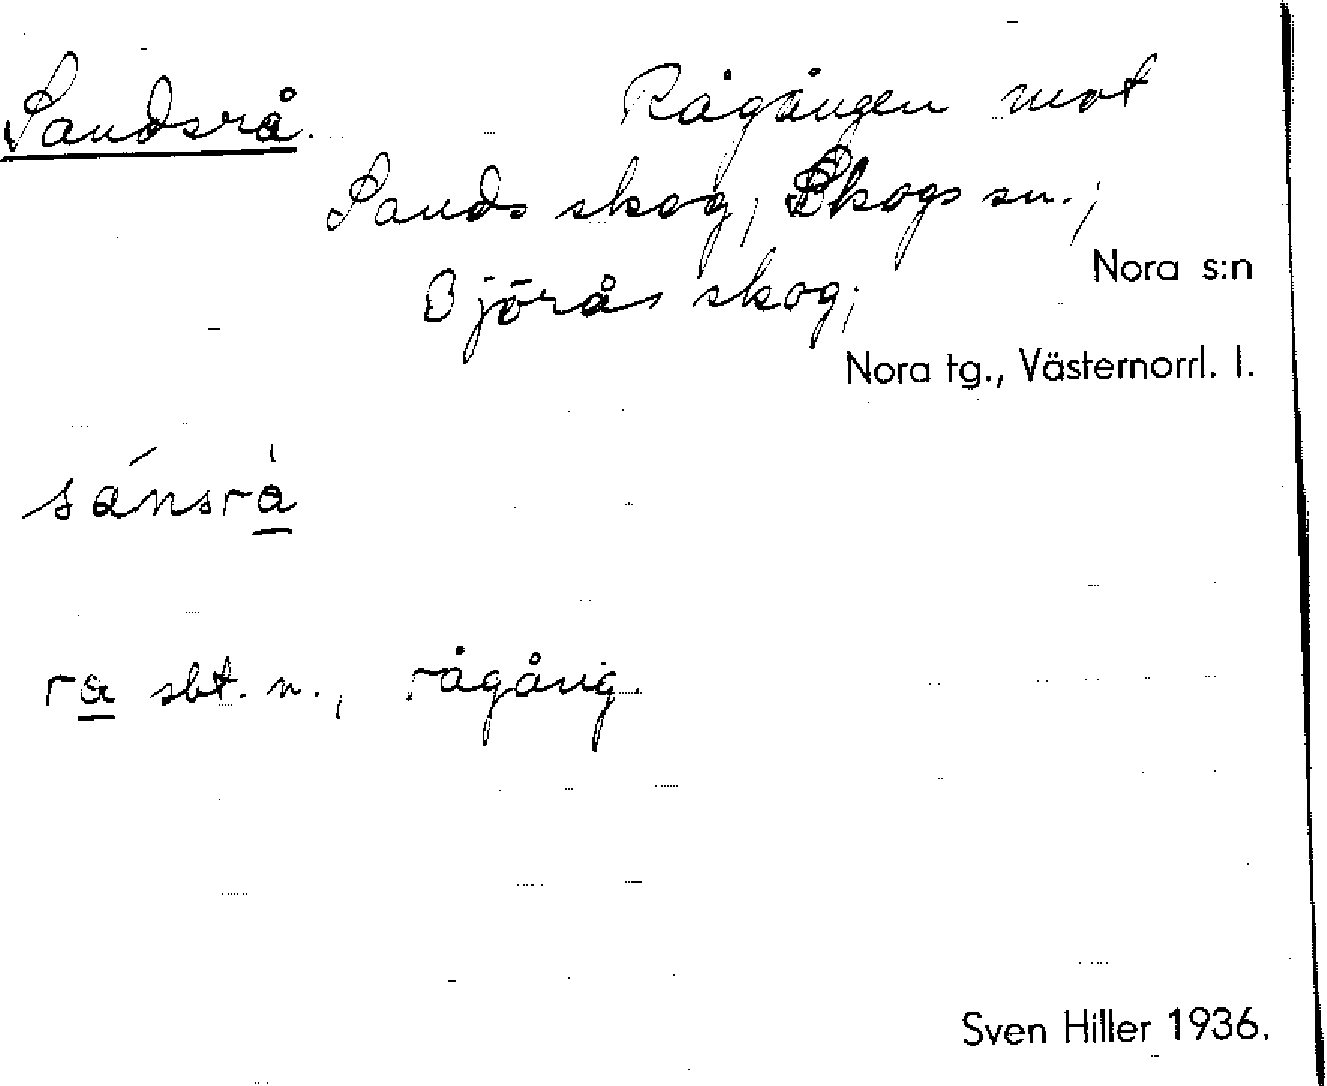 Sandsrå. Rågången mot
Sands skog, Skogs sn.,
Björås skog,
Nora s:n
Nora tg., Västernorrl. l.
sánsrà
ra sbt. n., rågång.
Sven Hiller 1936.